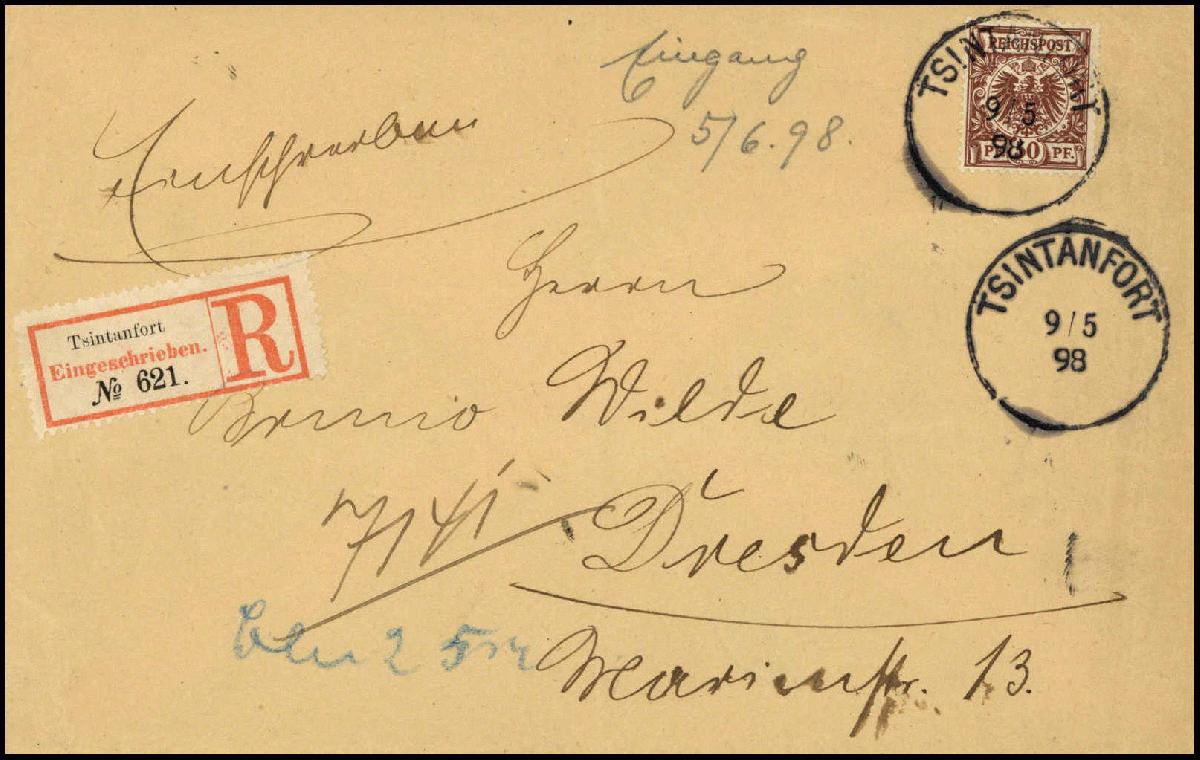 Eingang
5/6.98.
REICHSPOST
PF. 50 PF.
9/5
98
Einschreiben
TSINTANFORT
9/5
98
Herrn
Tsintanfort
Eingeschrieben.
№ 621.
R
Bruno Wilde
Dresden
Marienstr. 13.